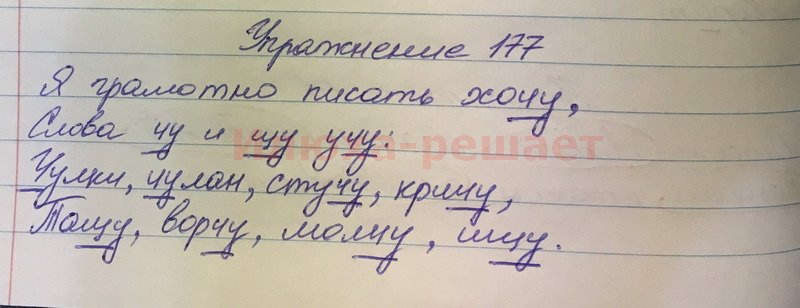 Упражнение 177
Я грамотно писать хочу,
Слова чу и щу учу:
Чулки, чулан, стучу, кричу,
Тащу, ворчу, молчу, ищу.